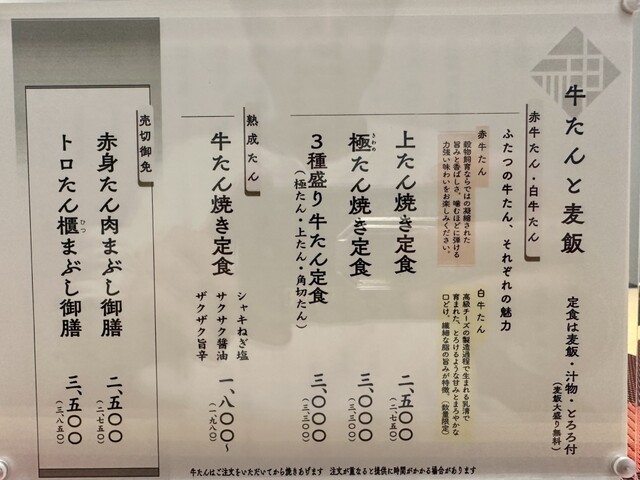 牛たんと麦飯
定食は麦飯・汁物・とろろ付
(麦飯大盛り無料)
赤牛たん・白牛たん
ふたつの牛たん、それぞれの魅力
赤牛たん
穀物飼育ならではの凝縮された
旨みと香ばしさ。噛むほどに弾ける
力強い味わいをお楽しみください。
白牛たん
高級チーズの製造過程で生まれる乳清で
育まれた、とろけるような甘みとまろやかな
口どけ。繊細な脂の旨みが特徴。(数量限定)
上たん焼き定食 二、五〇〇
(二、七五〇)
極たん焼き定食 三、〇〇〇
きわめ
(三、三〇〇)
3種盛り牛たん定食 三、〇〇〇
(極たん・上たん・角切たん) (三、三〇〇)
熟成たん
牛たん焼き定食 一、八〇〇〜
(一、九八〇)
シャキねぎ塩
サクサク醤油
ザクザク旨辛
売切御免
赤身たん肉まぶし御膳 二、五〇〇
(二、七五〇)
トロたん櫃まぶし御膳 三、五〇〇
ひつ
(三、八五〇)
牛たんはご注文をいただいてから焼きあげます 注文が重なると提供に時間がかかる場合があります